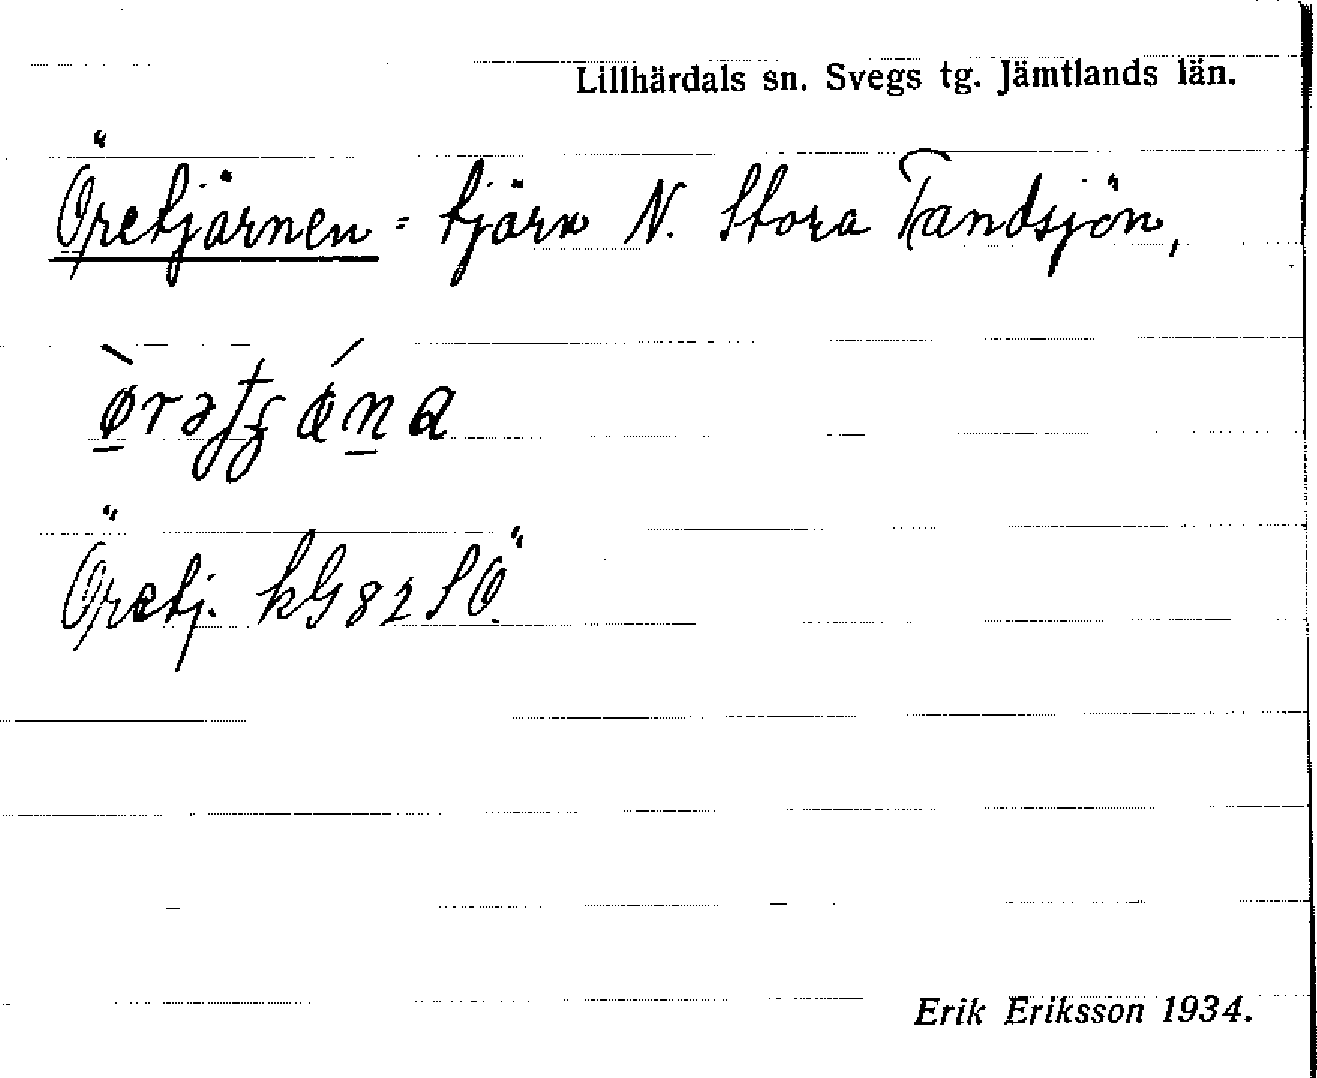 Lillhärdals sn. Svegs tg. Jämtlands län.
Öretjärnen = tjärn N. Stora Tandsjön,
Öretj. kG 82 SÖ.
Erik Eriksson 1934.